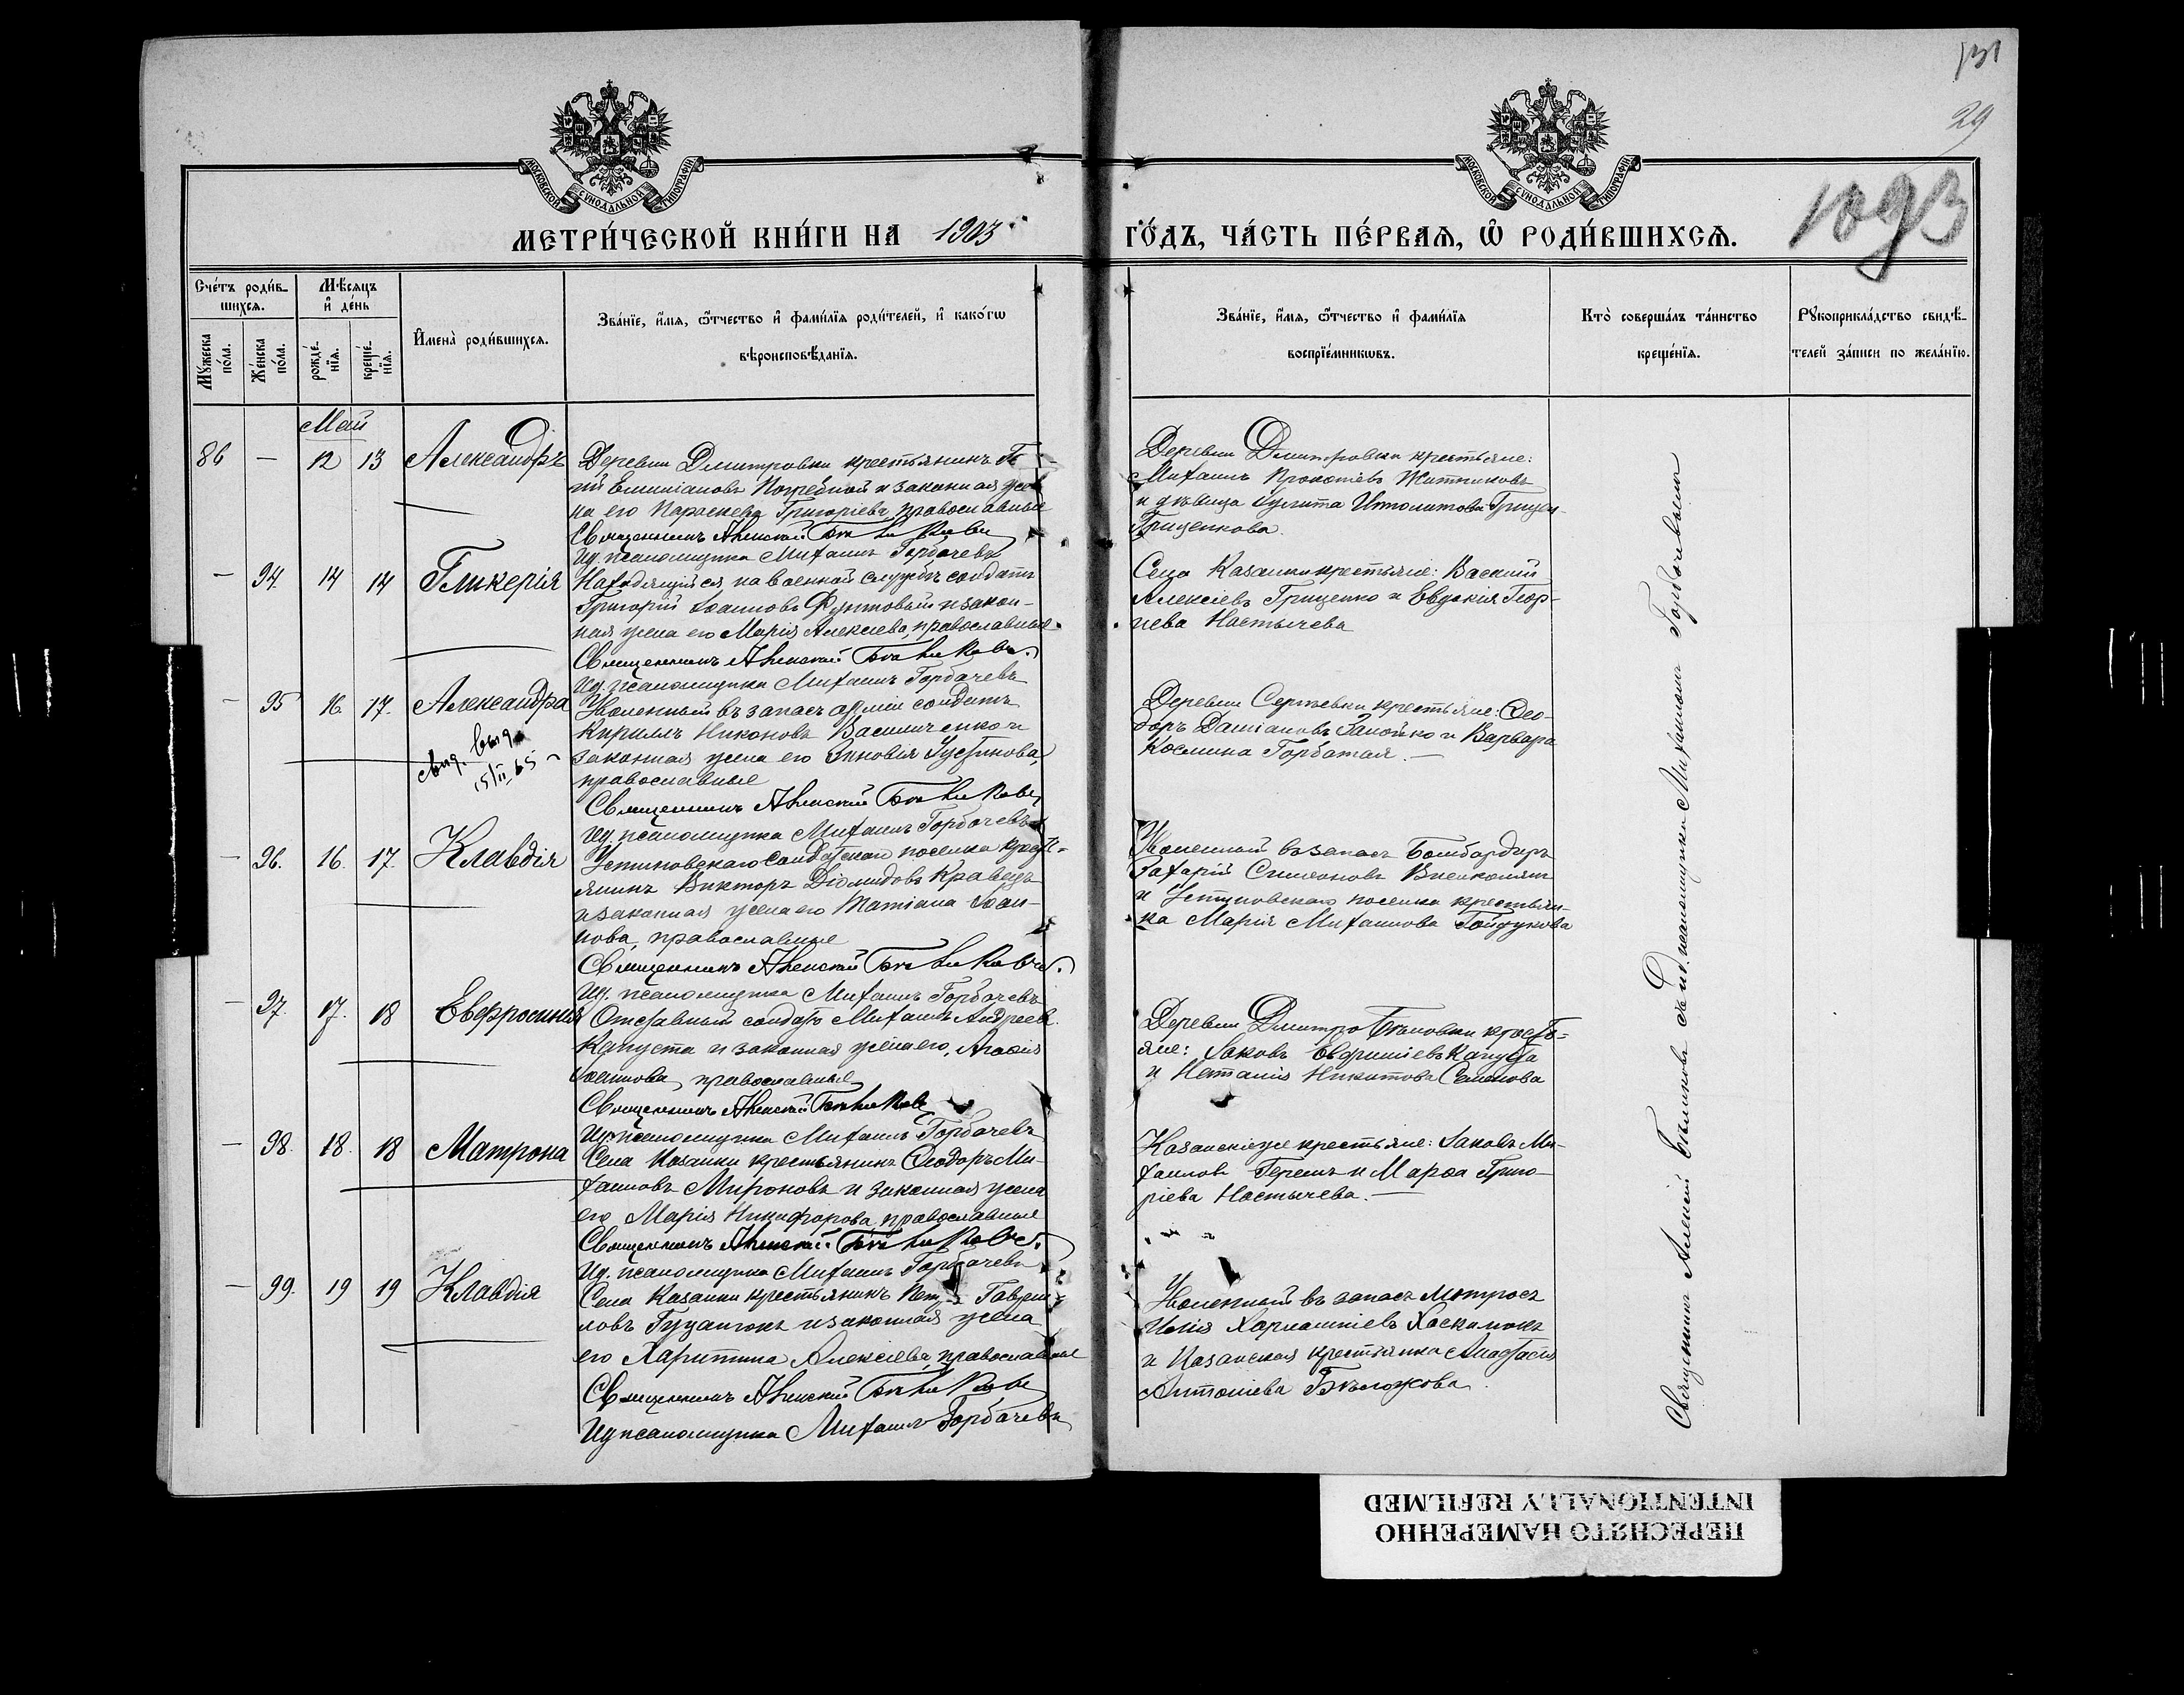 131
29
1093
МОСКОВСКОЙ СѴНОДАЛЬНОЙ ТИПОГРАФІИ
МОСКОВСКОЙ СѴНОДАЛЬНОЙ ТИПОГРАФІИ
МЕТРИ́ЧЕСКОЙ КНИ́ГИ НА 1903
ГО́ДЪ, ЧА́СТЬ ПЕ́РВАЯ, Ѡ РОДИ́ВШИХСЯ.
Сче́тъ роди́в-
шихся.
Мѣ́сяцъ
и҆ де́нь
Му́жеска по́ла.
Же́нска по́ла.
рожде́-
нїя.
креще́-
нїя.
И҆мена̀ роди́вшихся.
Зва́нїе, и҆́мя, ѻ҆́тчество и҆ фами́лїя роди́телей, и҆ како́гѡ
вѣроисповѣ́данїя.
Зва́нїе, и҆́мя, ѻ҆́тчество и҆ фами́лїя
воспрїе́мникѡвъ.
Кто̀ соверша́лъ та́инство
креще́нїя.
Рꙋкоприкла́дство свидѣ́-
телей за́писи по жела́нїю.
Май
86 — 12 13 Александръ
Деревни Дмитровки крестьянинъ
Емиліановъ и законная же-
на его Параскева Григоріева, православные
Священникъ Алексій Бѣликовъ
Ид. псаломщика Михаилъ Горбачевъ
Деревни Дмитровки крестьяне:
Михаилъ Прокопіевъ Житниковъ
и дѣвица Улита Ипполитова
Гриценкова.
— 94. 14 14 Гликерія
Находящійся на военной службѣ солдатъ
Григорій Іоанновъ и закон-
ная жена его Марія Алексіева, православные.
Священникъ Алексій Бѣликовъ.
Ид. псаломщика Михаилъ Горбачевъ
Села Казанки крестьяне: Василій
Алексіевъ Гриценко и Евдокія Геор-
гіева Настычева
— 95 16. 17. Александра
свид. выд.
15/II 65
Уволенный въ запасъ арміи солдатъ
Кириллъ Никоновъ Василиченко и
законная жена его Зиновія Устинова,
православные
Священникъ Алексій Бѣликовъ
Ид. псаломщика Михаилъ Горбачевъ
Деревни Сергѣевки крестьяне: Ѳео-
доръ Даміановъ и Варвара
Космина Горбатая. —
— 96. 16. 17. Клавдія
Устиновскаго Солдатскаго поселка крест-
янинъ Викторъ Діомидовъ Кравецъ
и законная жена его Татіана Іоан-
нова, православные
Священникъ Алексій Бѣликовъ.
Ид. псаломщика Михаилъ Горбачевъ
Уволенный въ запасъ Бомбардиръ
Захарій Симеоновъ
и Устиновскаго поселка крестьян-
ка Марія Михаилова Гайдукова
— 97. 17. 18 Евфросинія
Отставный солдатъ Михаилъ Андреевъ
Капуста и законная жена его, Агаѳія
Іоаннова, православные
Священникъ Алексій Бѣликовъ
Ид. псаломщика Михаилъ Горбачевъ
Деревни Дмитро Бѣловки крестья-
яне: Іаковъ Евфиміевъ Капуста
и Наталія Никитова Семенова
— 98. 18. 18 Матрона
Села Казанки крестьянинъ Ѳеодоръ Ми-
хаиловъ Мироновъ и законная жена
его Марія Никифорова, православные
Священникъ Алексій Бѣликовъ.
Ид. псаломщика Михаилъ Горбачевъ
Казанскіе же крестьяне: Іаковъ Ми-
хаиловъ и Марѳа Григо-
ріева Настычева. —
— 99. 19 19 Клавдія
Села Казанки крестьянинъ Гаври-
ловъ и законная жена
его Харитина Алексіева, православные
Священникъ Алексій Бѣликовъ
Ид псаломщика Михаилъ Горбачевъ
Уволенный въ запасъ матросъ
Илія Харлампіевъ
и Казанская крестьянка Анастасія
Антоніева
Священникъ Алексій Бѣликовъ съ и.д. псаломщика Михаиломъ Горбачевымъ
ПЕРЕСНЯТО НАМЕРЕННО
INTENTIONALLY REFILMED